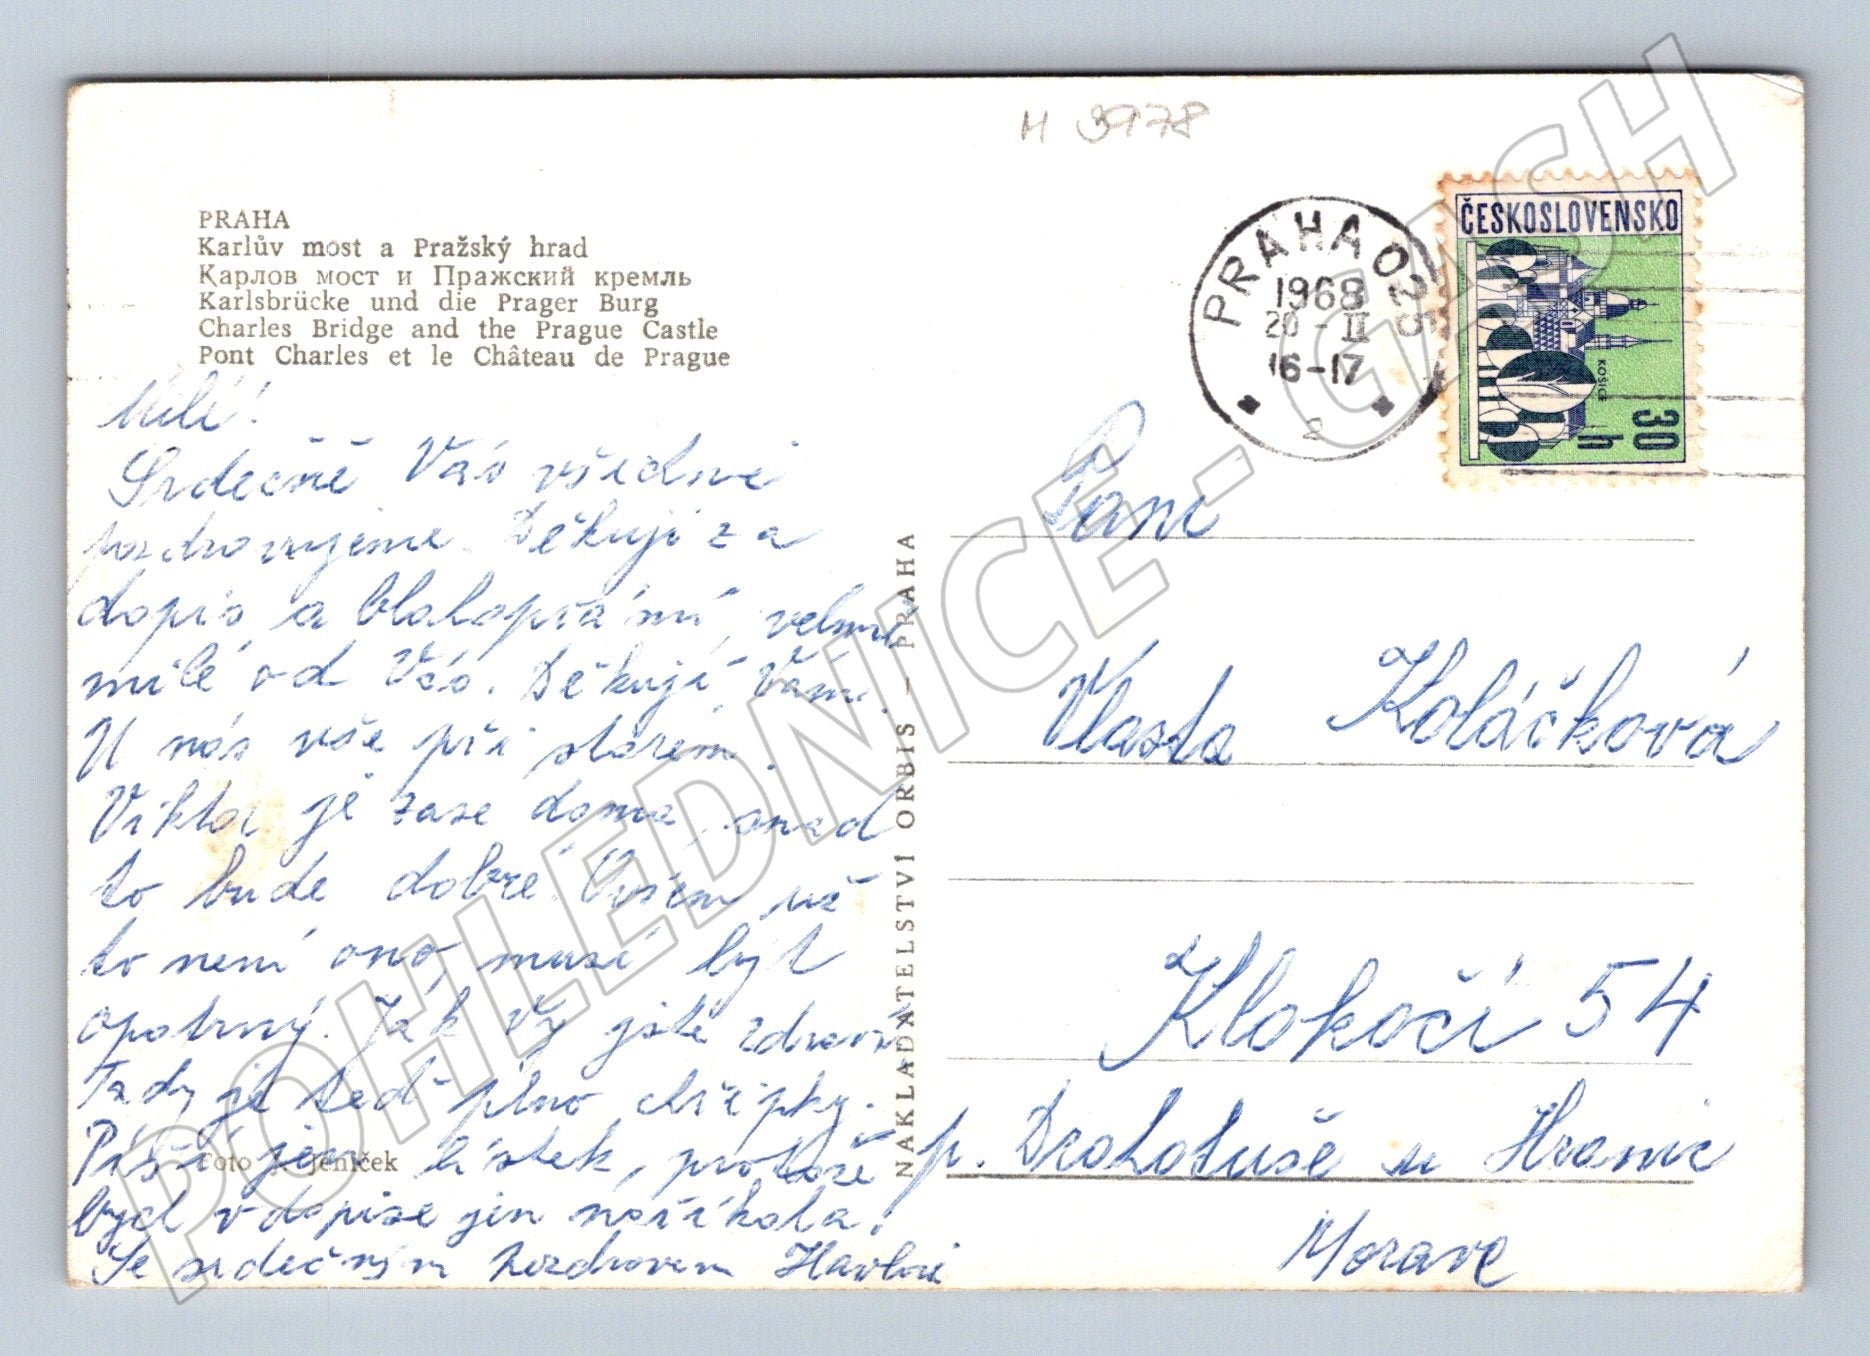 M 3978
PRAHA
Karlův most a Pražský hrad
Карлов мост и Пражский кремль
Karlsbrücke und die Prager Burg
Charles Bridge and the Prague Castle
Pont Charles et le Château de Prague
PRAHA 025
1968
20-II
16-17
2
ČESKOSLOVENSKO
KOŠICE
30 h
Milí!
Srdečně Vás všedni
pozdravujeme. Děkuji za
dopis a blahopřání, velmi
milé od Vás. Děkuji Vám.
U nás vše při starém.
Viktor je zase doma, snad
to bude dobré. Ovšem už
to není ono, musí být
opatrný. Jak Vy jste zdraví
Tady je teď plno chřipky.
Píši jen lístek, protože
bych v dopise jen naříkala.
Se srdečným pozdravem
Foto Jeníček
NAKLADATELSTVÍ ORBIS – PRAHA
Paní
Vlasta Koláčková
Klokočí 54
p. Drahotuše u Hranic
Morava
POHLEDNICE - GASH